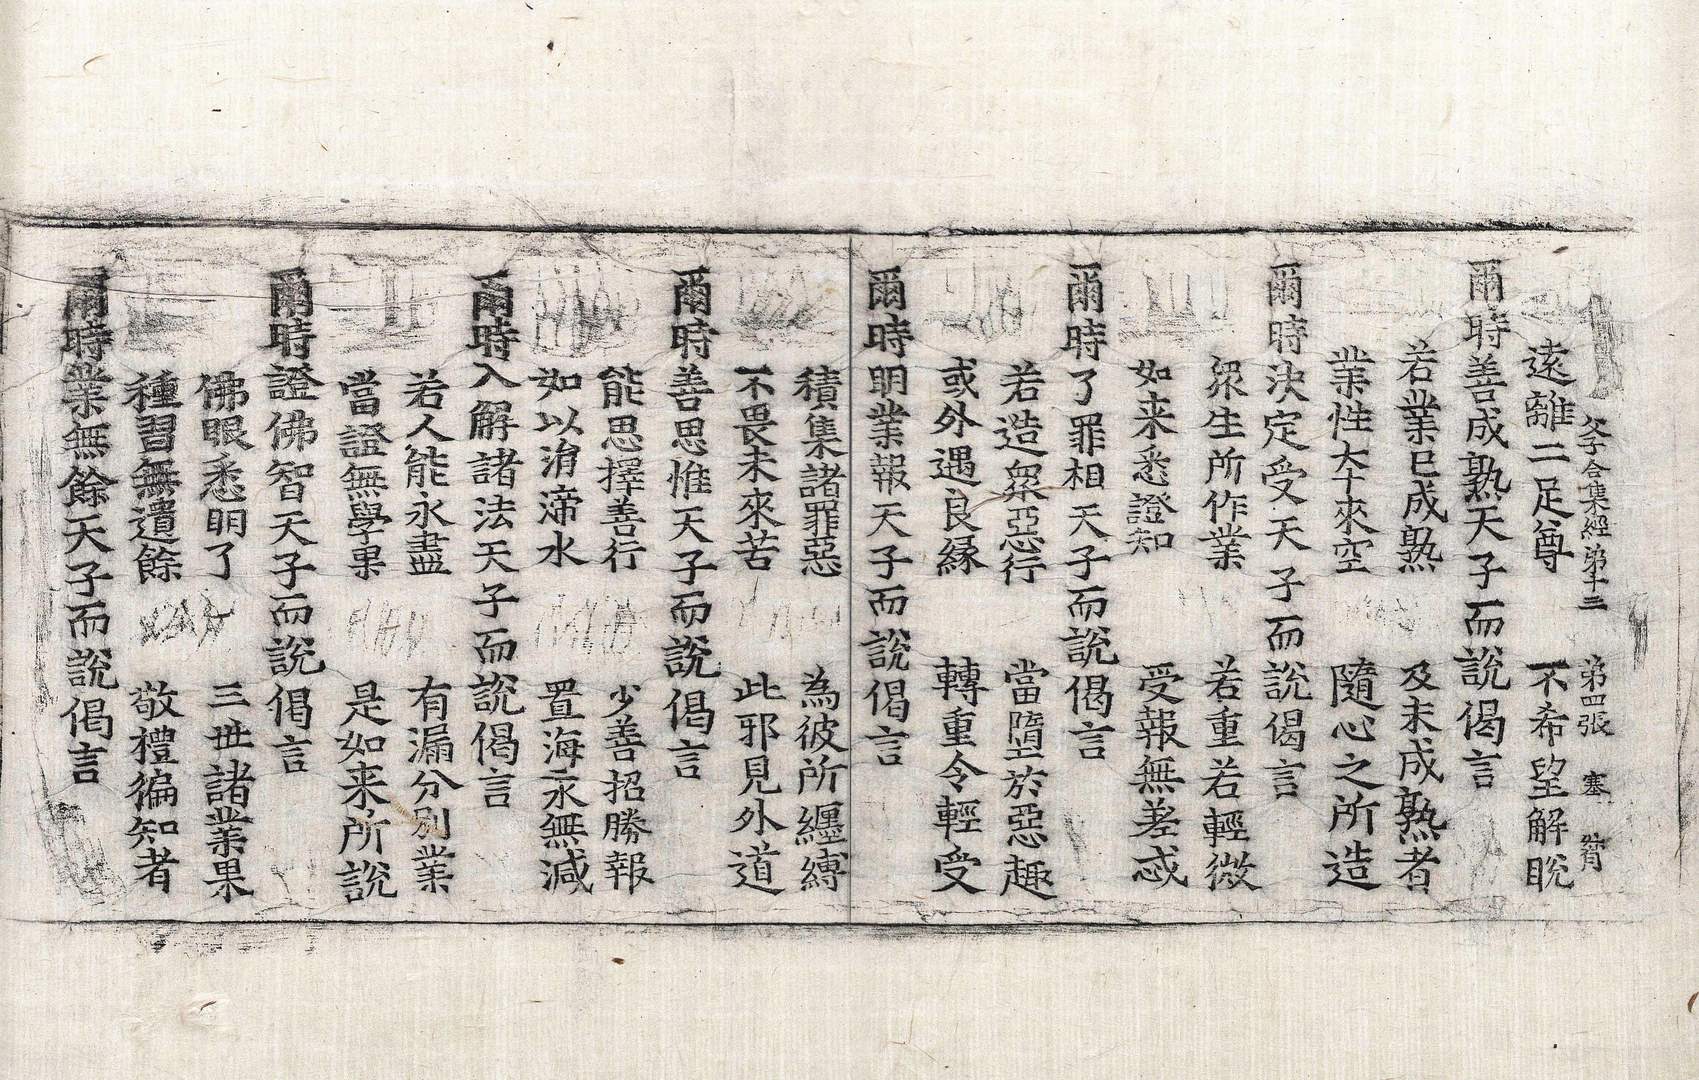 父子合集經第十三　第四張　塞
遠離二足尊　不希望解脫
爾時善成熟天子而說偈言
若業已成熟　及未成熟者
業性夲來空　隨心之所造
爾時決定受天子而說偈言
眾生所作業　若重若輕微
如来悉證知　受報無差忒
爾時了罪相天子而說偈言
若造眾惡行　當墮於惡趣
或外遇良緣　轉重令輕受
爾時明業報天子而說偈言
積集諸罪惡　為彼所纏縛
不畏未來苦　此邪見外道
爾時善思惟天子而說偈言
能思擇善行　少善招勝報
如以涓滴水　置海永無減
爾時入解諸法天子而說偈言
若人能永盡　有漏分別業
當證無學果　是如来所說
爾時證佛智天子而說偈言
佛眼悉明了　三世諸業果
種習無遺餘　敬禮徧知者
爾時業無餘天子而說偈言